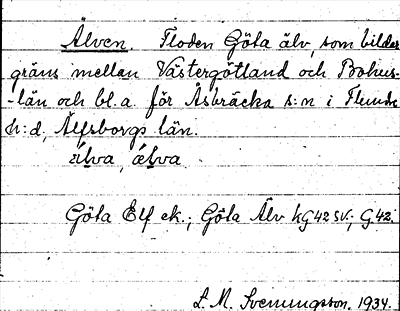 Älven. Floden Göta älv, som bildar
gräns mellan Västergötland och Bohus-
-län och bl.a. för Åsbräcka s:n i Flundre
h:d, Älfsborgs län.
älva, älva
Göta Elf ek.; Göta Älv kG42SV; G42.
S. M. Svenungsson. 1934.